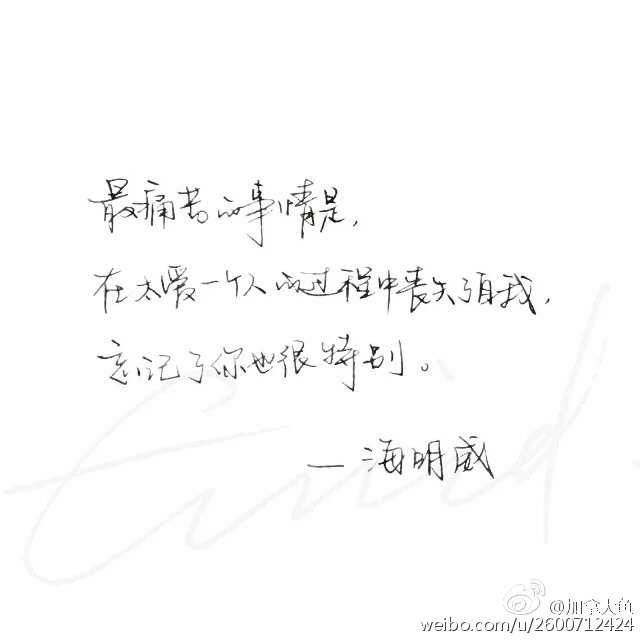 最痛苦的事情是,
在太爱一个人的过程中丧失了自我,
忘记了你也很特别。
— 海明威
Enid
@加拿大鱼
weibo.com/u/2600712424